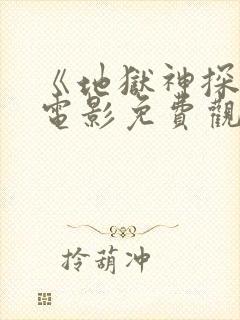 《地獄神探
電影免費觀
拎葫冲